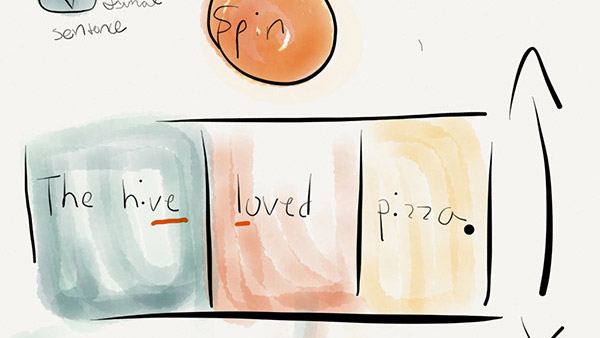 sentence
Spin
The hive loved pizza.